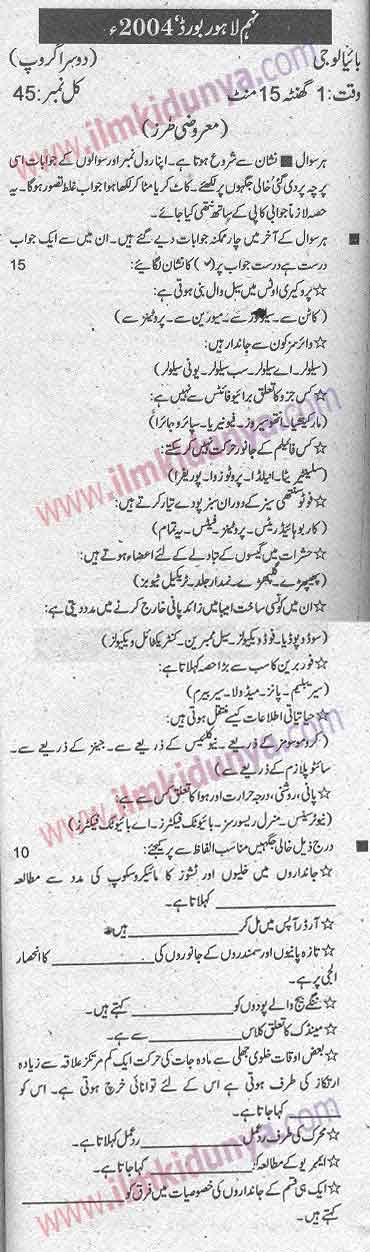 نہم لاہور بورڈ، 2004ء
بائیالوجی (دوسرا گروپ)
وقت: 1 گھنٹہ 15 منٹ کل نمبر: 45
(معروضی طرز)
ہر سوال ■ نشان سے شروع ہوتا ہے۔ اپنا رول نمبر اور سوالوں کے جوابات اسی
پرچہ پر دی گئی خالی جگہوں پر لکھئے۔ کاٹ کر یا مٹا کر لکھا ہوا جواب غلط تصور ہوگا۔ یہ
حصہ لازماً جوابی کاپی کے ساتھ نتھی کیا جائے۔
■ ہر سوال کے آخر میں چار ممکنہ جوابات دیے گئے ہیں۔ ان میں سے ایک جواب
درست ہے درست جواب پر (✓) کا نشان لگائیے: 15
☆ پروکیری اوٹس میں سیل وال بنی ہوتی ہے:
(کائن سے۔ سیلولوز سے۔ میورین سے۔ پروٹینز سے)
☆ وائرسز کون سے جاندار ہیں:
(سیلولر۔ اے سیلولر۔ سب سیلولر۔ یونی سیلولر)
☆ کس جزو کا تعلق برائیوفائٹس سے نہیں ہے:
(مارکینٹیا۔ انتھوسیروز۔ فیونیریا۔ سپائروجائرا)
☆ کس فائیلم کے جانور حرکت نہیں کر سکتے:
(سلینٹیریٹا۔ انیلڈا۔ پروٹوزوا۔ پوریفرا)
☆ فوٹوسنتھی سیز کے دوران سبز پودے تیار کرتے ہیں:
(کاربوہائیڈریٹس۔ پروٹینز۔ فیٹس۔ یہ تمام)
☆ حشرات میں گیسوں کے تبادلے کے لئے اعضاء ہوتے ہیں:
(پھیپھڑے۔ گلپھڑے۔ نمدار جلد۔ ٹریکیل ٹیوبز)
☆ ان میں کونسی ساخت امیبا میں زائد پانی خارج کرنے میں مدد دیتی ہے:
(سوڈوپوڈیا۔ فوڈ ویکیولز۔ سیل ممبرین۔ کنٹریکٹائل ویکیولز)
☆ فوربرین کا سب سے بڑا حصہ کہلاتا ہے:
(سیریبیلم۔ پانز۔ میڈولا۔ سیریبرم)
☆ حیاتیاتی اطلاعات کیسے منتقل ہوتی ہیں:
(کروموسومز کے ذریعے۔ نیوکلیس کے ذریعے سے۔ جینز کے ذریعے سے۔
سائٹوپلازم کے ذریعے سے)
☆ پانی، روشنی، درجہ حرارت اور ہوا کا تعلق کس سے ہے:
(نیوزسینس۔ منرل ریسورسز۔ بائیوٹک فیکٹرز۔ اے بائیوٹک فیکٹرز)
■ درج ذیل خالی جگہیں مناسب الفاظ سے پر کیجئے: 10
☆ جانداروں میں خلیوں اور نشوز کا مائیکروسکوپ کی مدد سے مطالعہ
________ کہلاتا ہے۔
☆ آرڈر آپس میں مل کر ________ ہیں
☆ تازہ پانیوں اور سمندروں کے جانوروں کی ________ کا انحصار
الجی پر ہے۔
☆ ننگے بیج والے پودوں کو ________ کہتے ہیں۔
☆ مینڈک کا تعلق کلاس ________ سے ہے۔
☆ بعض اوقات خلوی جھلی سے مادہ جات کی حرکت ایک کم مرتکز علاقہ سے زیادہ
ارتکاز کی طرف ہوتی ہے اس کے لئے توانائی خرچ ہوتی ہے۔ اس کو
________ کہا جاتا ہے۔
☆ محرک کی طرف ردعمل ________ ردعمل کہلاتا ہے۔
☆ ایمبریو کے مطالعہ کو ________ کہا جاتا ہے۔
☆ ایک ہی قسم کے جانداروں کی خصوصیات میں فرق کو ________
کہتے ہیں۔
www.ilmkidunya.com
www.ilmkidunya.com
www.ilmkidunya.com
www.ilmkidunya.com
www.ilmkidunya.com